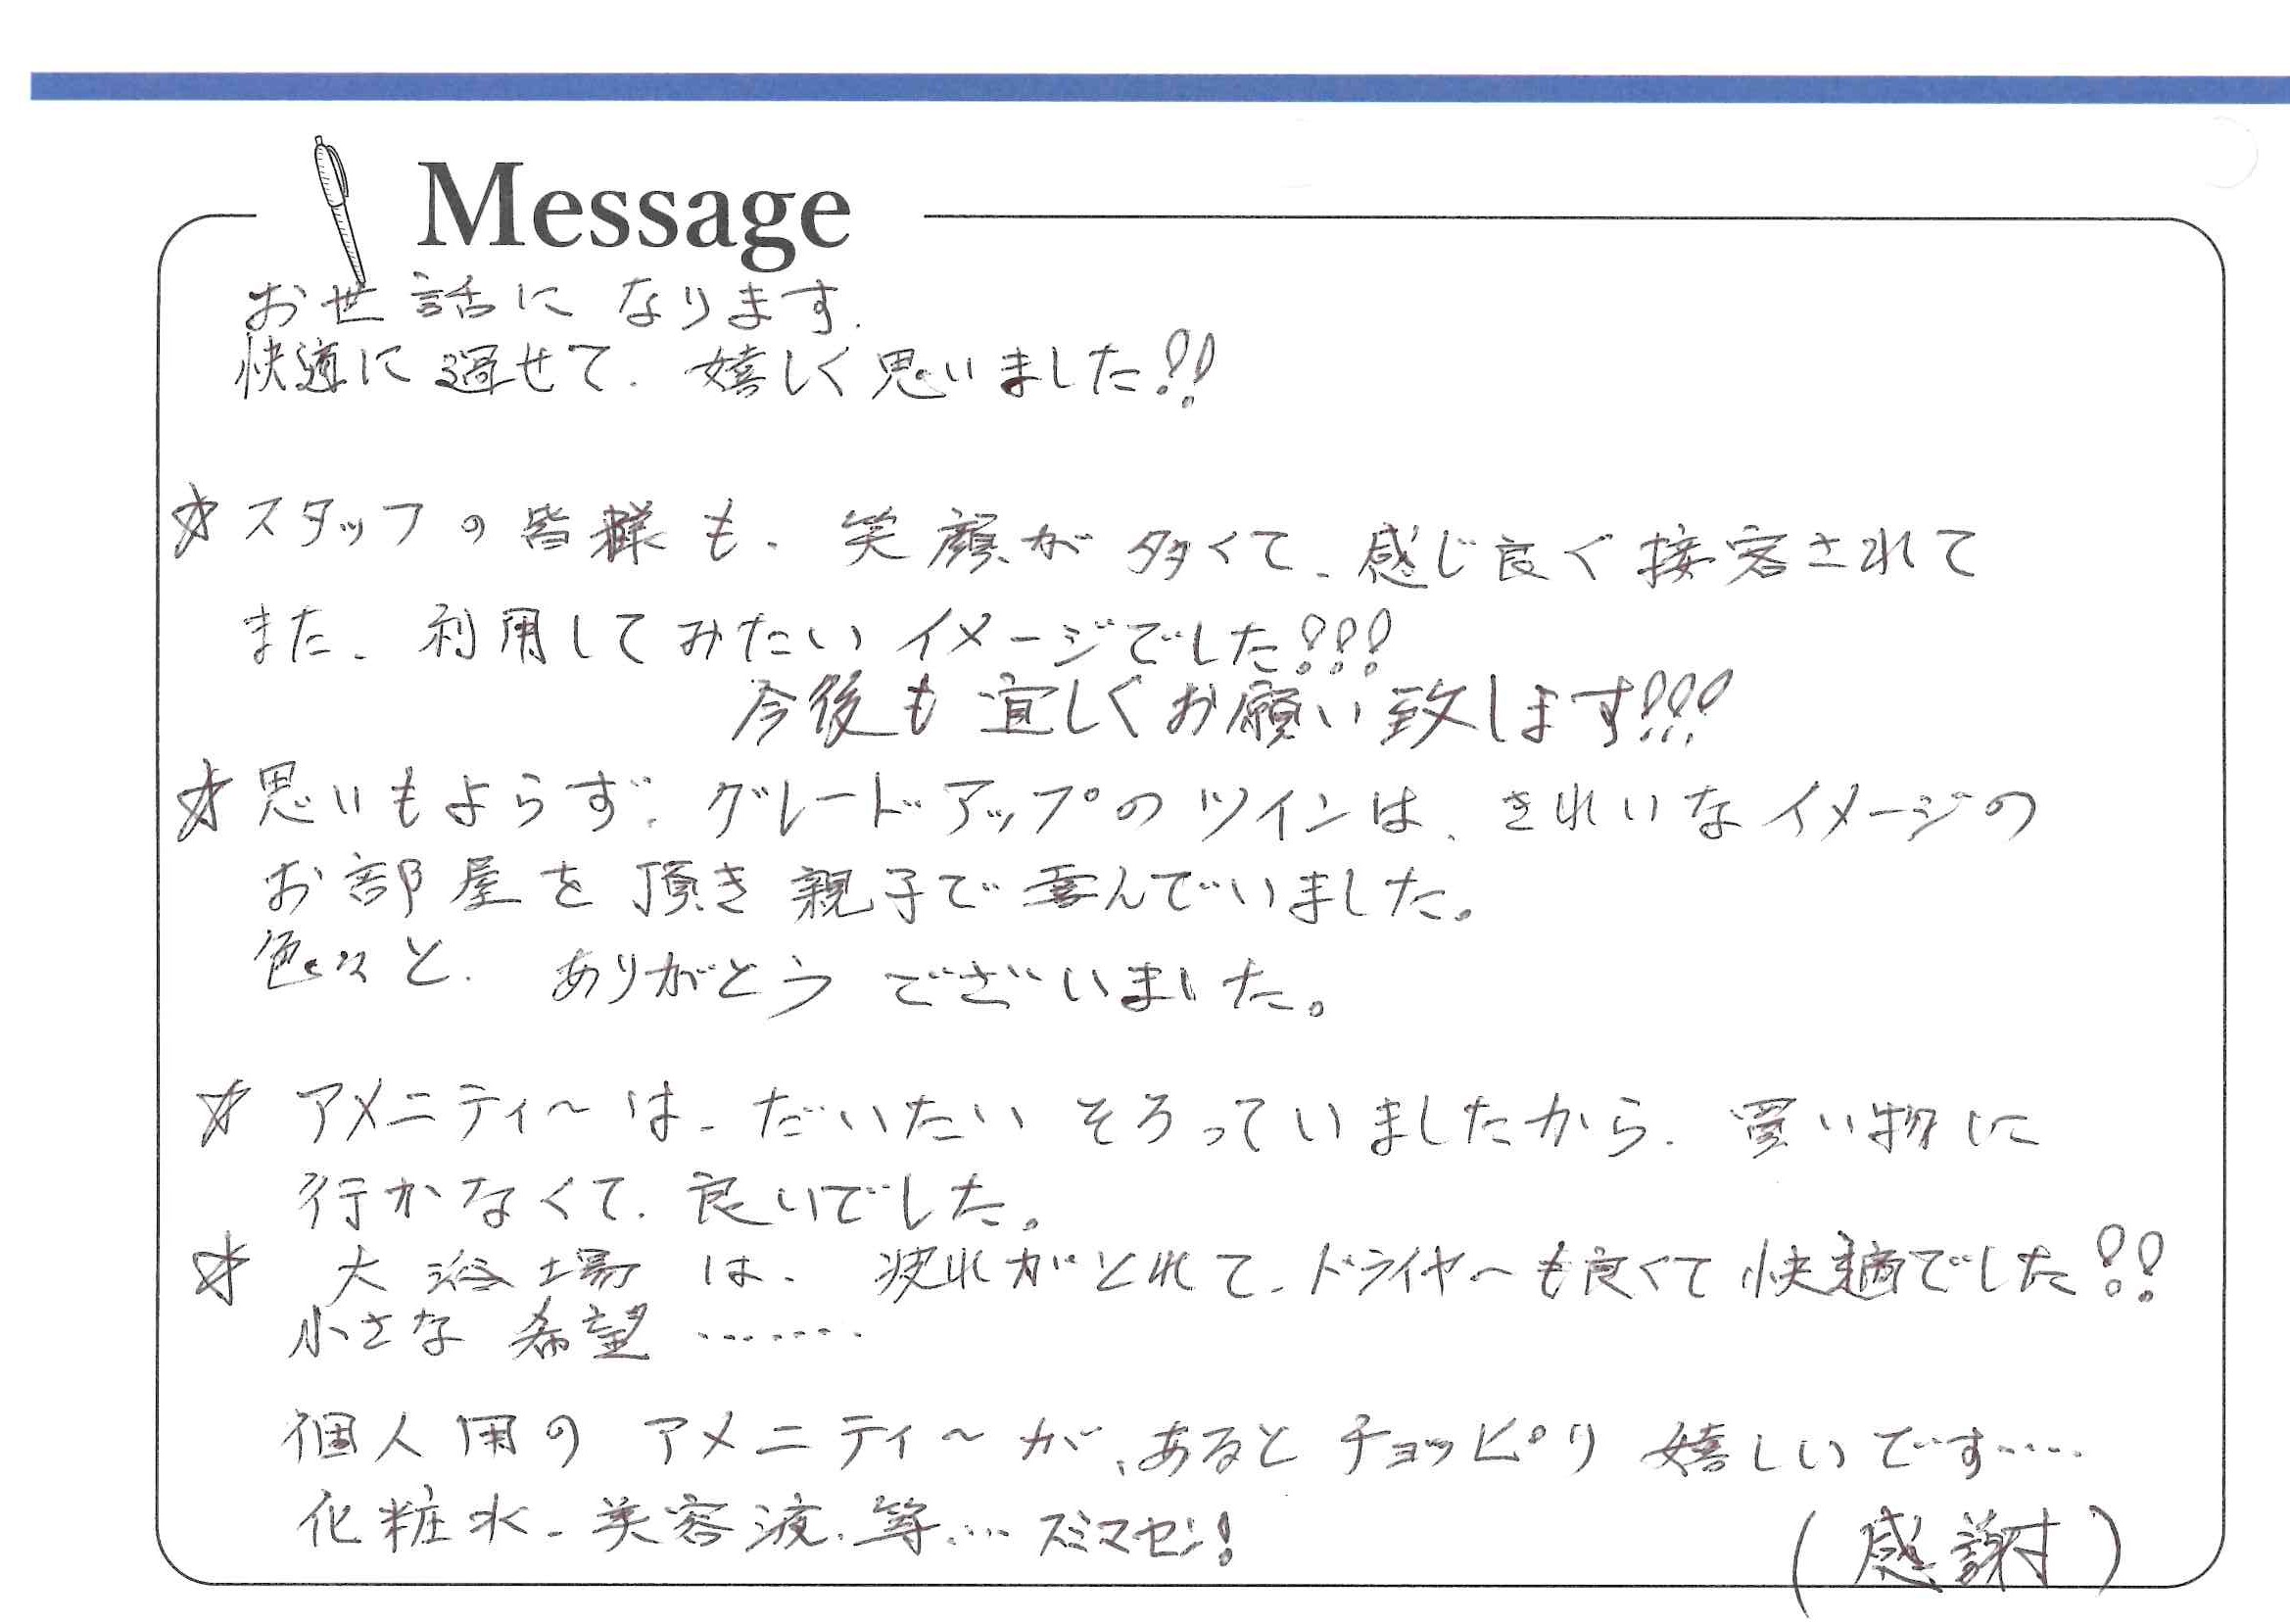 Message
お世話になります.
快適に過せて、嬉しく思いました!!
☆スタッフの皆様も、笑顔が多くて、感じ良く接客されて
また、利用してみたいイメージでした!!!
今後も宜しくお願い致します!!!
☆思いもよらず、グレードアップのツインは、きれいなイメージの
お部屋を頂き親子で喜んでいました。
色々と、ありがとうございました。
☆アメニティ～は、だいたいそろっていましたから、買い物に
行かなくて、良いでした。
☆大浴場は、疲れがとれて、ドライヤ～も良くて快適でした!!
小さな希望........
個人用のアメニティ～が、あるとチョッピリ嬉しいです.....
化粧水、美容液、等....スミマセン!
(感謝)